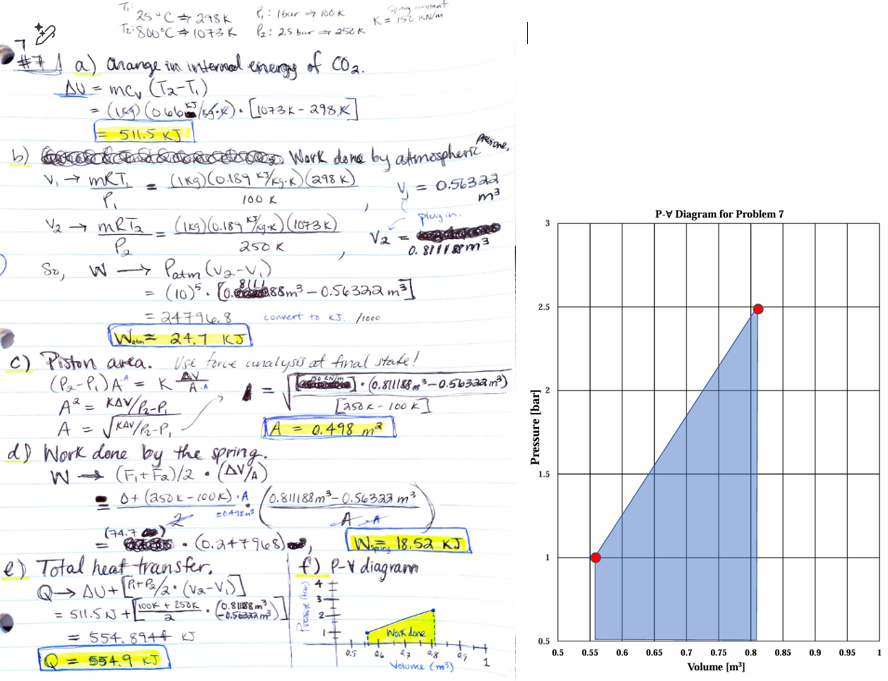 T₁: 25°C ⇒ 298K P₁: 1 bar ⇒ 100K Spring constant
T₂: 800°C ⇒ 1073K P₂: 2.5 bar ⇒ 250K K = 150 kN/m
#7 a) Change in internal energy of CO₂.
ΔU = mCv (T₂-T₁)
= (1kg)(0.66 kJ/kg·K) · [1073K - 298K]
= 511.5 KJ
b) Work done by atmospheric pressure,
V₁ → mRT₁/P₁ = (1kg)(0.189 kJ/kg·K)(298K)/100K , V₁ = 0.56322 m³
plug in.
V₂ → mRT₂/P₂ = (1kg)(0.189 kJ/kg·K)(1073K)/250K , V₂ = 0.811188m³
So, W → Patm (V₂-V₁)
= (10)⁵ · [0.811188m³ - 0.56322m³]
= 24796.8 convert to KJ. /1000
Watm = 24.7 KJ
c) Piston area. Use force analysis at final state!
(P₂-P₁)A = K ΔV/A ·A A = √[150 kN/m] · (0.811188m³ - 0.56322m³)/[250K - 100K]
A² = KΔV/P₂-P₁
A = √KΔV/P₂-P₁ A = 0.498 m²
d) Work done by the spring.
W → (F₁+F₂)/2 · (ΔV/A)
= 0 + (250K - 100K)·A/2 · (0.811188m³ - 0.56322 m³/A) A=0.498m²
= (74.7) · (0.247968), Wspring = 18.52 KJ
e) Total heat transfer.
Q → ΔU + [P₁+P₂/2 · (V₂-V₁)]
= 511.5 KJ + [100K + 250K/2 · (0.81188m³ - 0.56322m³)]
= 554.8944 KJ
Q = 554.9 KJ
f) P-V diagram
Pressure (bar)
4
3
2
1
Work done
0.5 0.6 0.7 0.8 0.9 1
Volume (m³)
P-∀ Diagram for Problem 7
Pressure [bar]
3
2.5
2
1.5
1
0.5
0.5 0.55 0.6 0.65 0.7 0.75 0.8 0.85 0.9 0.95 1
Volume [m³]